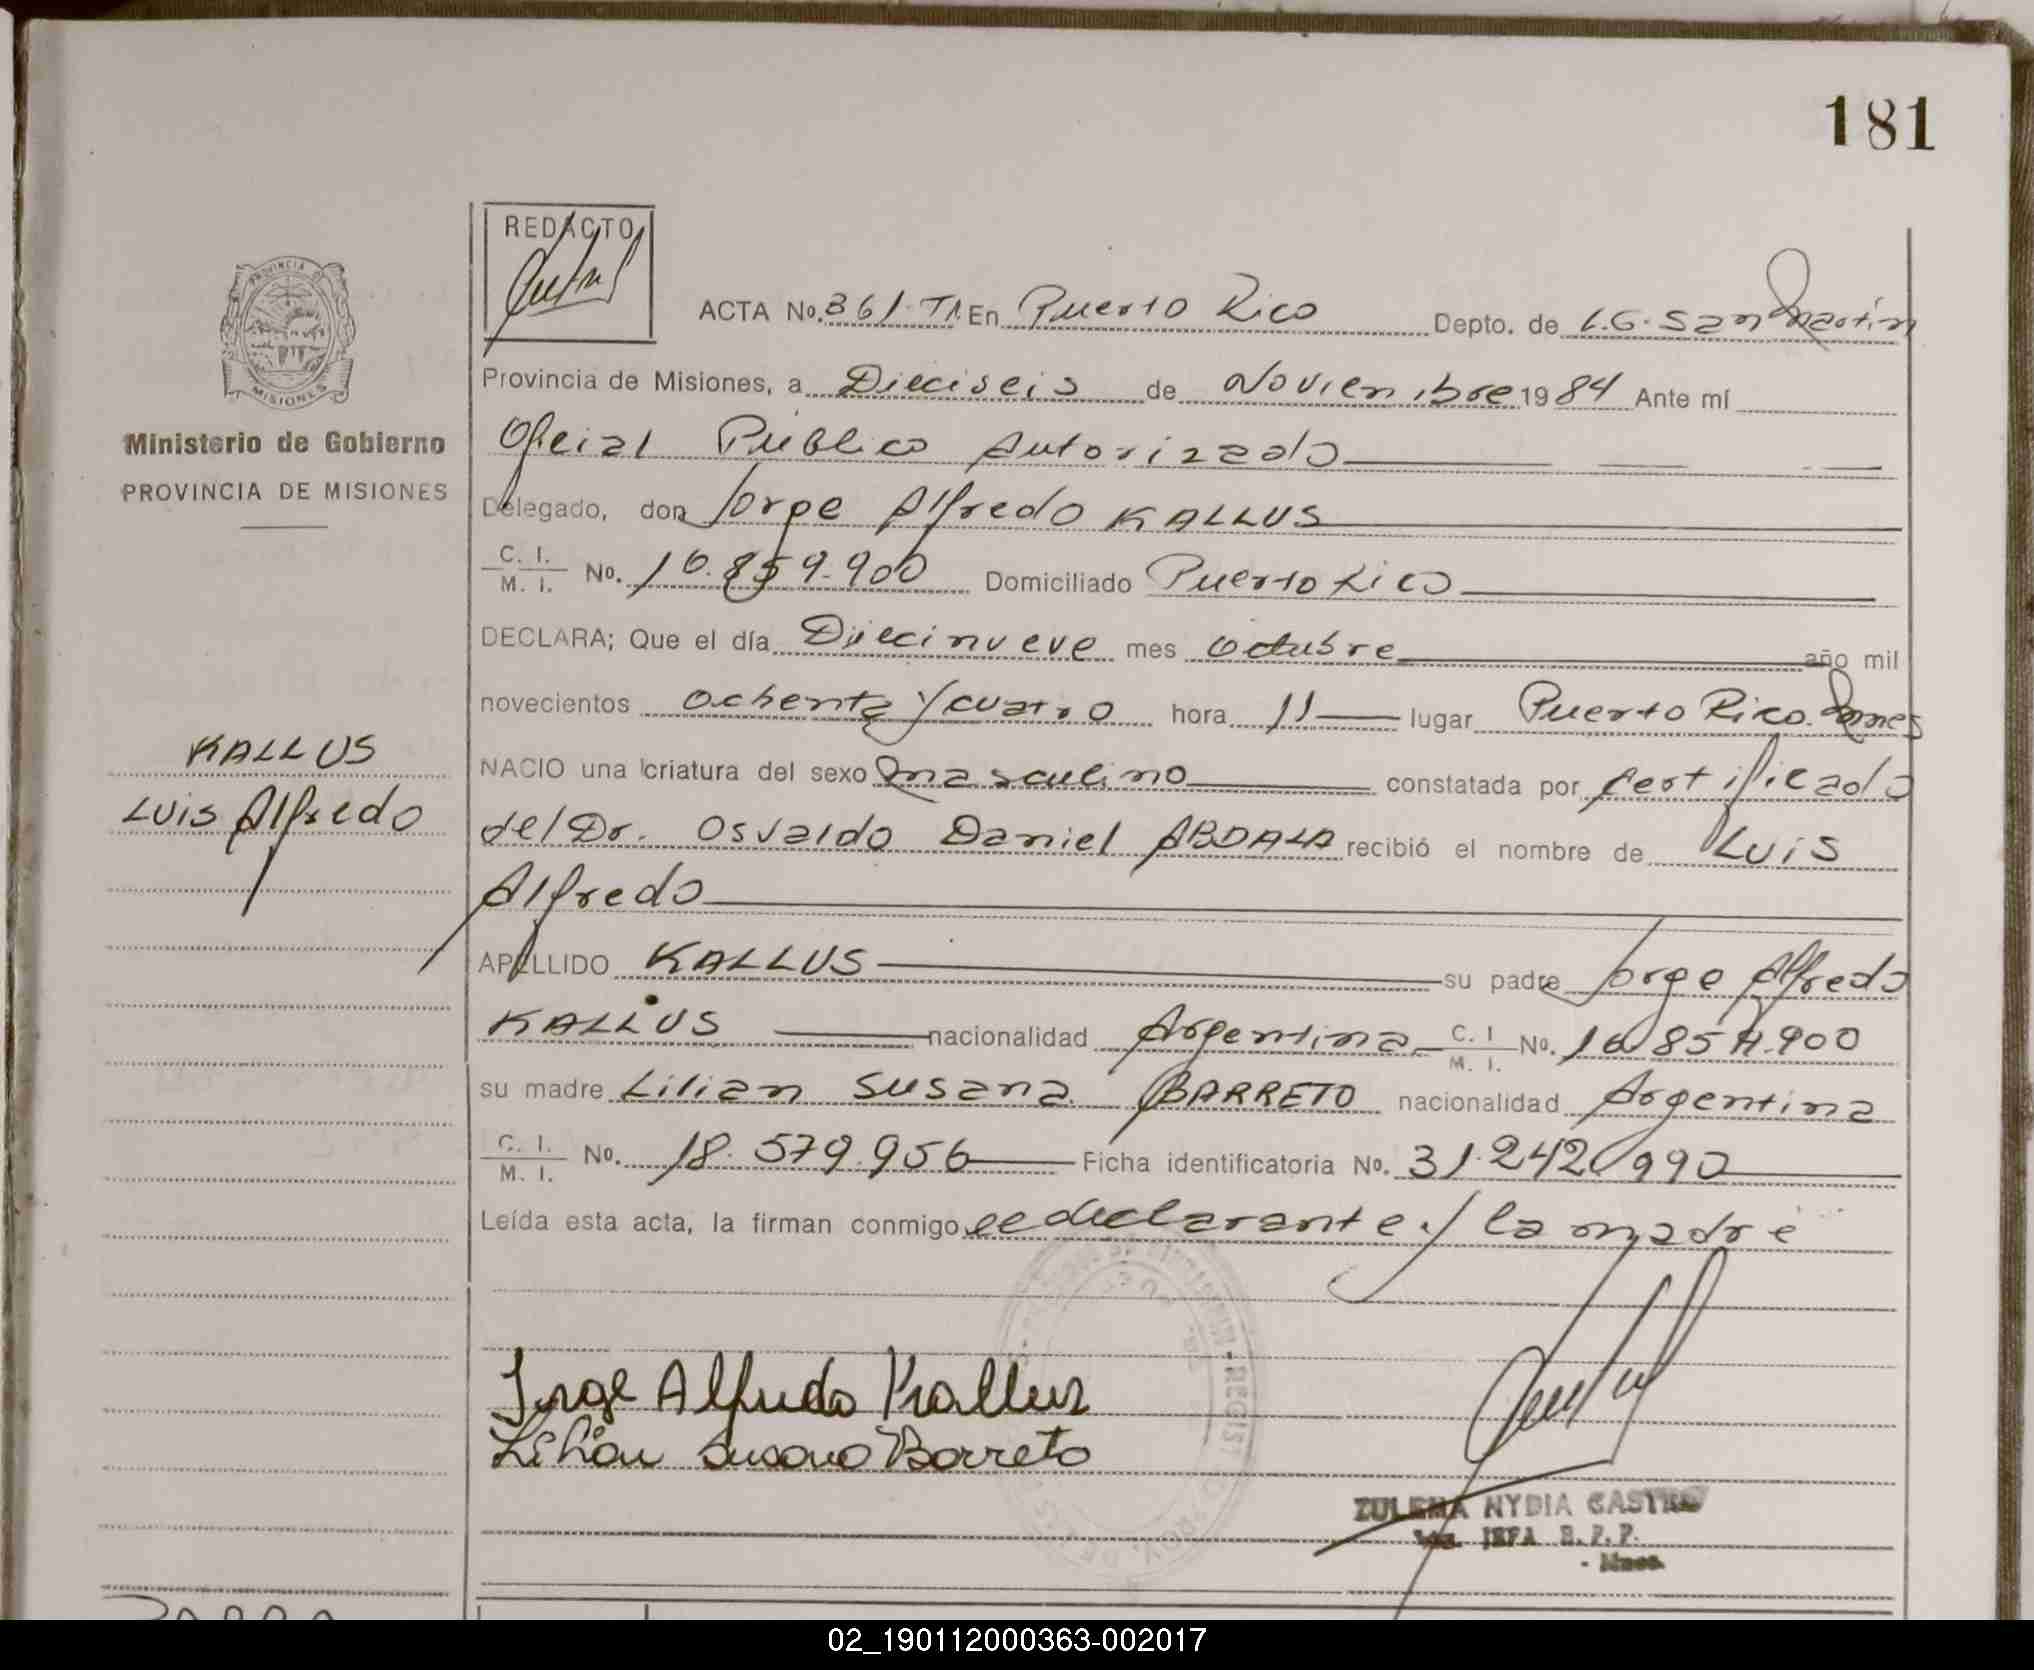 181
REDACTO
ACTA No. 361-T1. En Puerto Rico Depto. de L.G. San Martín
Provincia de Misiones, a Dieciseis de Noviembre 1984 Ante mí
Oficial Público Autorizado
Delegado, don Jorge Alfredo KALLUS
C. I. / M. I. No. 16.859.900 Domiciliado Puerto Rico
DECLARA; Que el día Diecinueve mes octubre año mil
novecientos ochenta y cuatro hora 11 lugar Puerto Rico. Mnes
NACIO una criatura del sexo masculino constatada por certificado
del Dr. Osvaldo Daniel ABDALA recibió el nombre de Luis
Alfredo
APELLIDO KALLUS su padre Jorge Alfredo
KALLUS nacionalidad Argentina C. I / M. I. No. 16.859.900
su madre Lilian Susana BARRETO nacionalidad Argentina
C. I. / M. I. No. 18.579.956 Ficha identificatoria No. 31.242.990
Leída esta acta, la firman conmigo el declarante y la madre
Jorge Alfredo Kallus
Lilian Susana Barreto
ZULEMA NYDIA CASTRO
JEFA R.P.P.
- Mnes.
PROVINCIA DE
MISIONES
Ministerio de Gobierno
PROVINCIA DE MISIONES
KALLUS
Luis Alfredo
02_190112000363-002017